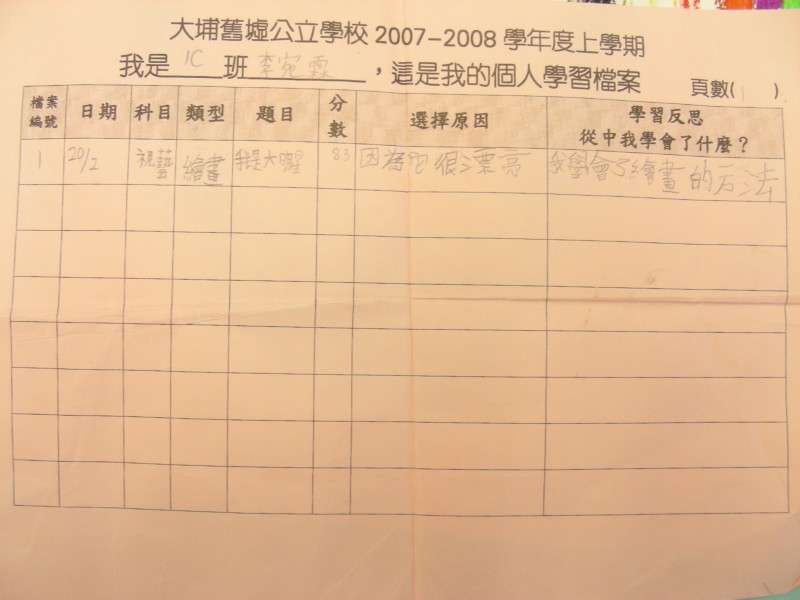 大埔舊墟公立學校 2007-2008 學年度上學期
我是 1C 班 李宛霖 ，這是我的個人學習檔案 頁數(1)
檔案編號 日期 科目 類型 題目 分數 選擇原因 學習反思 從中我學會了什麼？
1 20/2 視藝 繪畫 我是大明星 83 因為它很漂亮 我學會了繪畫的方法